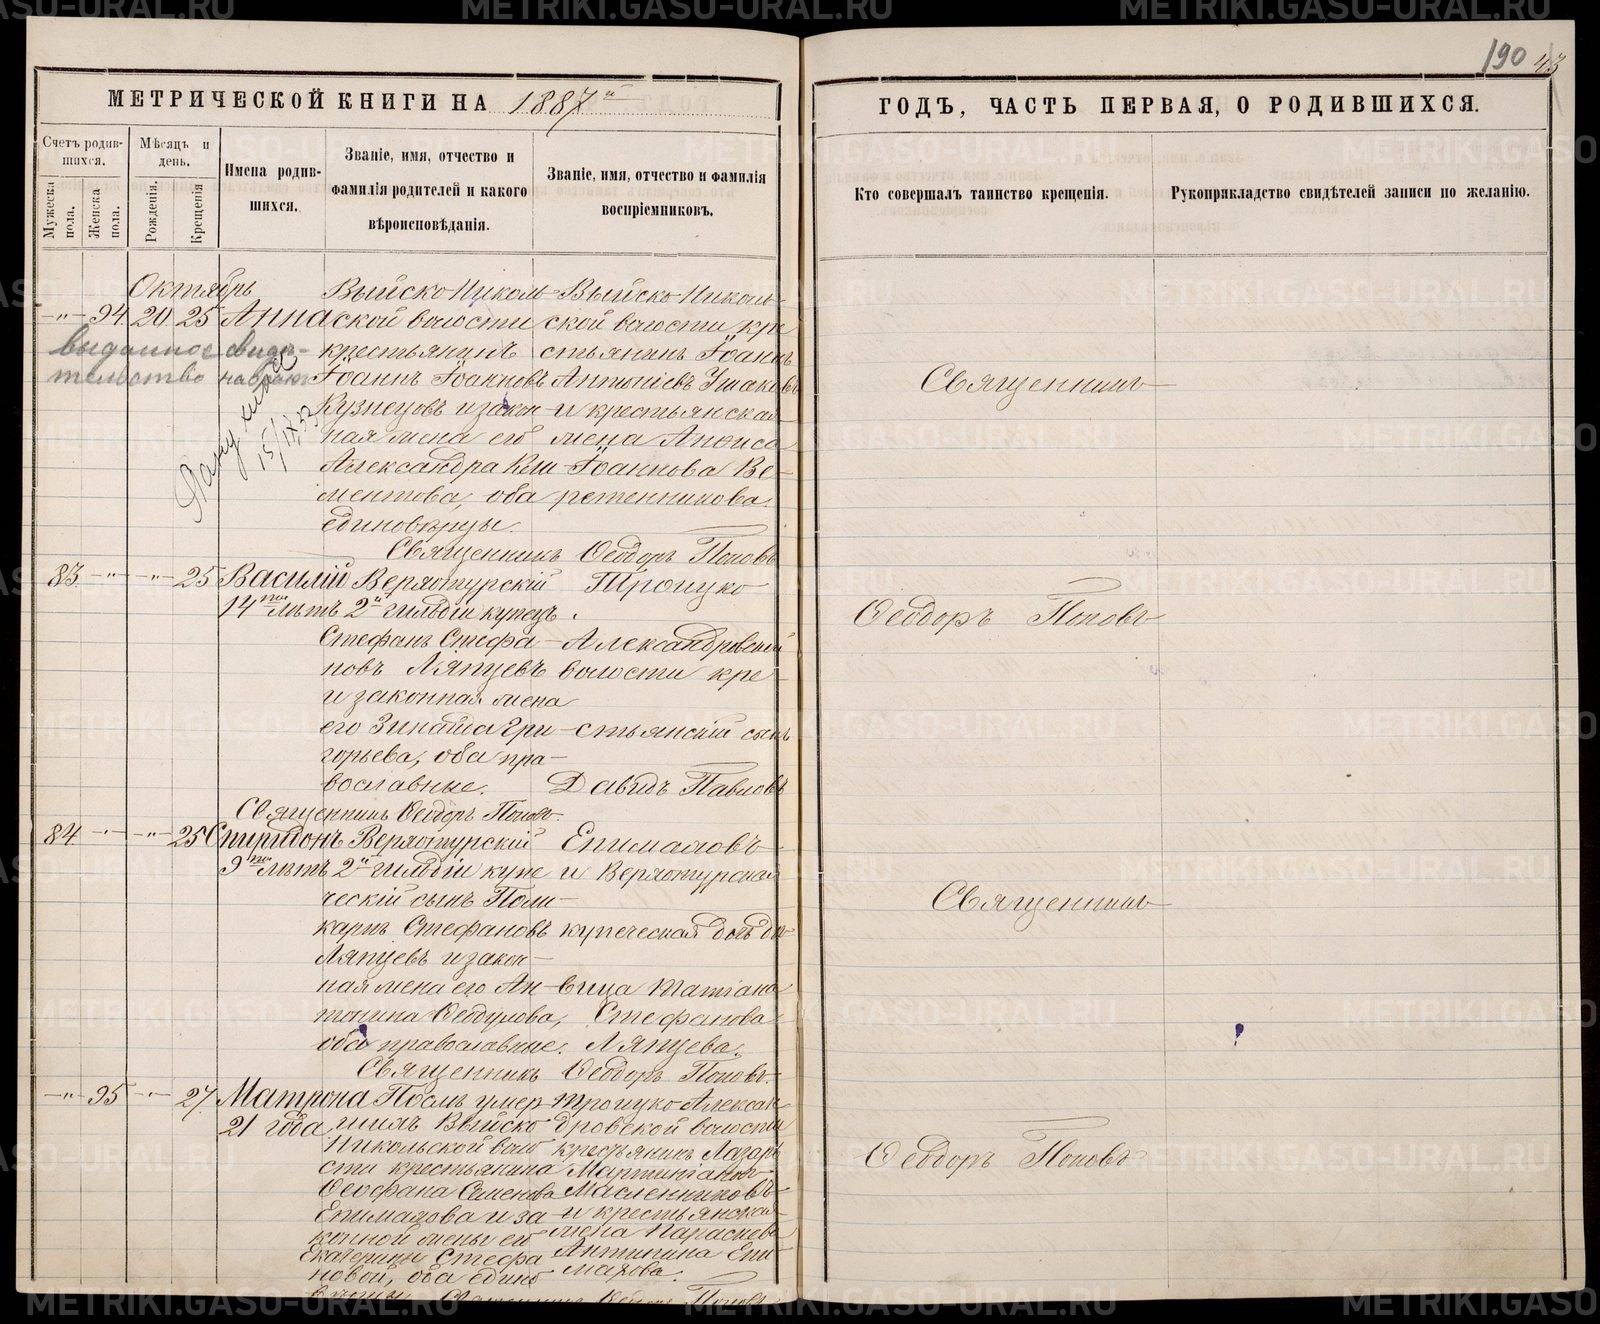 190 43
МЕТРИЧЕСКОЙ КНИГИ НА 1887й
ГОДЪ, ЧАСТЬ ПЕРВАЯ, О РОДИВШИХСЯ.
Счетъ родив-
шихся.
Мужеска
пола.
Женска
пола.
Мѣсяцъ и
день.
Рожденія.
Крещенія
Имена родив-
шихся.
Званіе, имя, отчество и
фамилія родителей и какого
вѣроисповѣданія.
Званіе, имя, отчество и фамилія
воспріемниковъ.
Кто совершалъ таинство крещенія.
Рукоприкладство свидѣтелей записи по желанію.
Октябрь
-"- 94 20 25 Анна
выданное свидѣ-
тельство на бракъ
15/IX 33
Выйско-Николь-
ской волости
крестьянинъ
Іоаннъ Іоанновъ
Кузнецовъ и закон-
ная жена его
Александра Кли-
ментова, оба
единовѣрцы.
Выйско-Николь-
ской волости кре-
стьянинъ Іоаннъ
Антоніевъ Ушаковъ
и крестьянская
жена Анфиса
Іоаннова Ве-
ретенникова.
Священникъ Ѳеодоръ Поповъ
Священникъ
Ѳеодоръ Поповъ
83 -"- -"- 25 Василій
14ти лѣтъ
Верхотурскій
2й гильдіи купецъ
Стефанъ Стефа-
новъ Ляпцевъ
и законная жена
его Зинаида Гри-
горьева, оба пра-
вославные.
Троицко-
Александровской
волости кре-
стьянскій сынъ
Давидъ Павловъ
Священникъ Ѳеодоръ Поповъ.
84 -"- -"- 25 Спиридонъ
9ти лѣтъ
Верхотурскій
2й гильдіи купе-
ческій сынъ Поли-
карпъ Стефановъ
Ляпцевъ и закон-
ная жена его Ан-
тонина Ѳеодулова,
оба православные.
Епимаховъ
и Верхотурская
купеческая дочь дѣ-
вица Татіана
Стефанова
Ляпцева.
Священникъ Ѳеодоръ Поповъ.
Священникъ
Ѳеодоръ Поповъ
-"- 95 -"- 27 Матрона
21 года
Послѣ умер-
шихъ Выйско-
Никольской воло-
сти крестьянина
Ѳеофана Семенова
Епимахова и за-
конной жены его
Екатерины Стефа-
новой, оба едино-
вѣрцы.
Троицко-Алексан-
дровской волости
крестьянинъ Лазарь
Мартиніановъ
Масленниковъ
и крестьянская
жена Параскева
Антипина Епи-
махова.
Священникъ Ѳеодоръ Поповъ